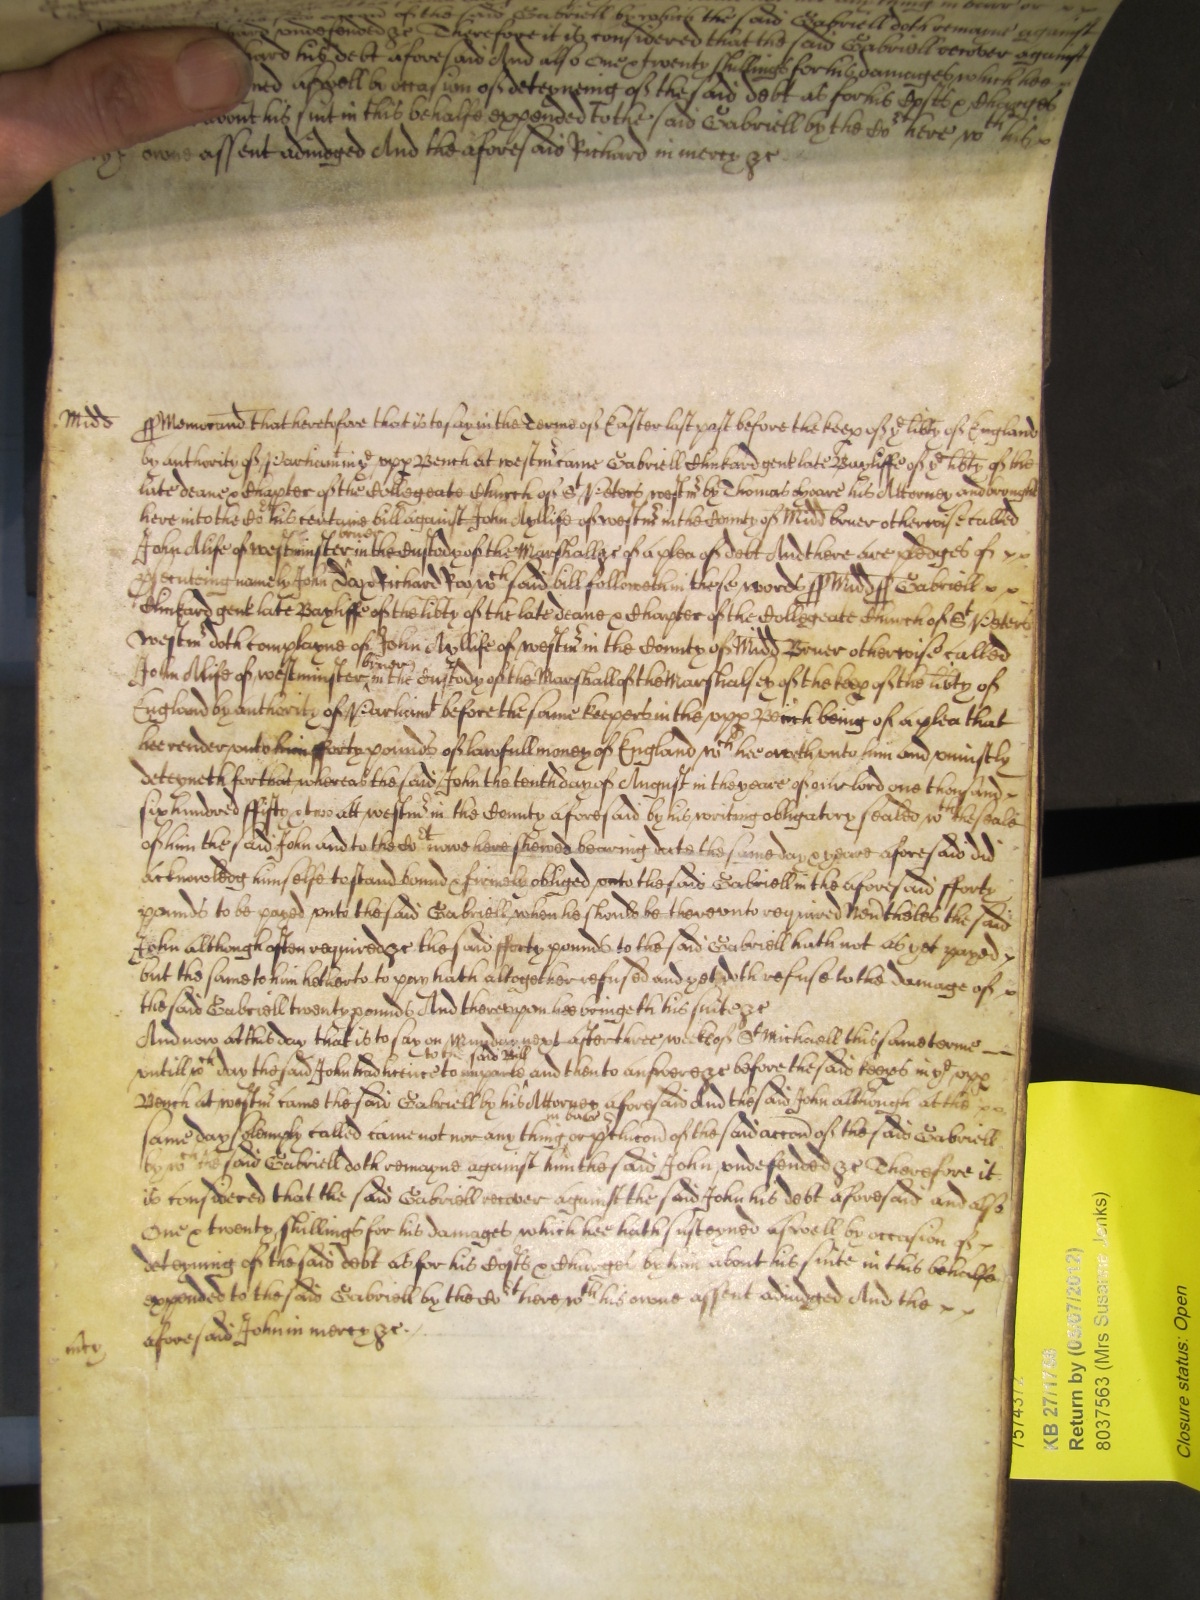 of the said Gabriell by which the said Gabriell doth remayne against
undefended &c Therefore it is considered that the said Gabriell recover against
his debt aforesaid And also One x twenty shillings for his damages which hee
aswell by occasion of deteyneing of the said debt as for his Costs x Charges
about his suit in this behalfe expended To the said Gabriell by the Cort here wth his
owne assent adiudged And the aforesaid Richard in mercy &c
Midd Memorand That heretofore that is to say in the Terme of Easter last past before the keeps of ye libty of England
by authority of Parliamt in ye upp Bench at westmr came Gabriell gent late Bayliffe of ye libty of the
late deane x Chapter of the Collegeate Church of St Peters westmr by Thomas his Attorney and brought
here into the Cort his certaine bill against John Ayllife of westmr in the County of Midd bruer otherwise called
John Alife of westminster bruer in the Custody of the Marshall &c of a plea of debt And there are pledges of
namely John Day x Richard Roo wch said bill followeth in these words Midd Gabriell
gent late Bayliffe of the libty of the late deane x Chapter of the Collegeate Church of St Peters
westmr doth complayne of John Ayllife of westmr in the County of Midd Bruer otherwise called
John Alife of westminster bruer in the Custody of the Marshall of the Marshalsey of the keeps of the libty of
England by authority of Parliamt before the same keepers in the upp Bench being of a plea that
hee render unto him fforty pounds of lawfull money of England wch hee oweth unto him and uniustly
deteyneth for that whereas the said John the tenth day of August in the yeare of our lord one thousand
six hundred ffifty x two att westmr in the County aforesaid by his writing obligatory sealed wth the seale
of him the said John and to the Cort nowe here shewed bearing date the same day x yeare aforesaid did
acknowledg himselfe to stand bound x firmely obliged unto the said Gabriell in the aforesaid fforty
pounds to be payed unto the said Gabriell when he should be thereunto required Nevtheles the said
John although often required &c the said fforty pounds to the said Gabriell hath not as yet payed
but the same to him hetherto to pay hath altogether refused and yet doth refuse to the damage of
the said Gabriell twenty pounds And thereupon hee bringeth his suite &c
And now at this day that is to say on Munday next after three weekes of St Michaell this same terme
untill wch day the said John had licence to the said Bill to imparle and then to answere &c before the said keeps in ye upp
Bench at westmr came the said Gabriell by his Attorney aforesaid And the said John although at the
same day solemply called came not nor any thing in barr or of the said accon of the said Gabriell
by wch the said Gabriell doth remayne against him the said John undefended &c Therefore it
is considered that the said Gabriell recover against the said John his debt aforesaid and also
One x twenty shillings for his damages which hee hath susteyned aswell by occasion of
deteyning of the said debt as for his Costs x Charges by him about his suite in this behalfe
expended to the said Gabriell by the Cort here wth his owne assent adiudged And the
mcy aforesaid John in mercy &c
KB 27/1748
Return by (05/07/2017)
8037563 (Mrs Susanne Jenks)
Closure status: Open